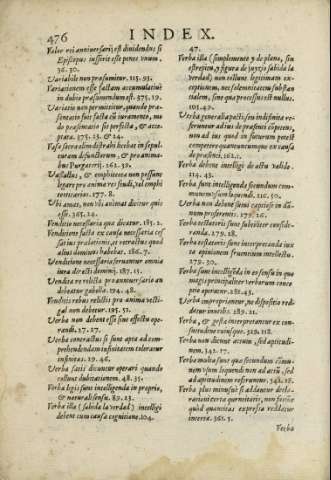 476 INDEX.
Valor rei anniversarij est dividendus si
Episcopus iusserit esse penes unum.
36.30.
Variabile non præsumitur. 115.93.
Variationem esse factam accumulativè
in dubio præsumendum est. 375.19.
Variatio non permittitur, quando præ-
sentatio fuit facta cū iuramento, mo
do præsentatio sit perfecta, & acce-
ptata. 375.23.
Vasa sacra olim distrahi bebat in sepul
turam defunctorum, & pro anima-
bus Purgatorij. 262.39.
Vasallus, & emphiteota non possunt
legare pro anima res feudi, vel emphi
teoticarias. 177.8.
Ubi amat, non ubi animat dicitur quis
esse. 365.24.
Venditio necessaria quæ dicatur. 185.2.
Venditione facta ex causa necessaria ces
sat ius prælationis, et retractus quod
alius dominus habebat. 186.7.
Venditione necessaria servantur omnia
iura directi domini. 187.15.
Vendita re relicta pro anniversario an
debeatur gabella. 194.48.
Venditis rebus relictis pro anima vecti-
gal non debetur. 195.51.
Verba non debent esse sine effectu ope-
randi. 27.27.
Verba contractus si sunt apta ad com-
prehendendum infinitatem tolerator
infinitas. 19.46.
Verba satis dicuntur operari quando
tollunt dubitationem. 48.35.
Verba legis sunt intelligenda in proprio,
& naturali sensu. 89.23.
Verba illa (sabida la verdad) intelligi
debent cum causæ cognitione. 104.
47.
Verba illa (simplemente y de plano, sin
estrepitu, y figura de juyzio sabida la
verdad) non tollunt legitimam ex-
ceptionem, nec solemnitatem substan
tialem, sine qua processus est nullus.
105.49.
Verba generalia pacti seu indifinita re-
feruntur ad ius de præsenti competens,
non ad ius quod in futurum potest
competere quantumcumque ex causa
de præsenti. 162.1.
Verba debent intelligi de actu valido.
114.43.
Verba sunt intelligenda secundum com-
munem usum loquendi. 116.50.
Verba non debent sumi captiosè in dā-
num proferentis. 179.16.
Verba testatoris sunt subtiliter conside-
randa. 179.18.
Verba testatoris sunt interpretanda iux
ta opinionem frequentiorem.
179.20.
Verba sunt intelligēda in eo sensu in quo
magis principaliter verborum conce-
ptio operatur. 281.43.
Verba impropriantur, ne dispositio red-
datur inutilis. 289.21.
Verba, & gesta interpretantur ex con-
suetudine cuiusque. 329.118.
Verba non dicunt actum, sed aptitudi-
nem. 342.17.
Verba multa sunt quæ secundum cōmu-
nem usum loquendi non ad actū, sed
ad aptitudinem referuntur. 342.18.
Verba plus minusve si addantur decla-
rationi certæ quantitatis, non seruitur
quòd quantitas expressa reddatur
incerta. 361.5.
Verba